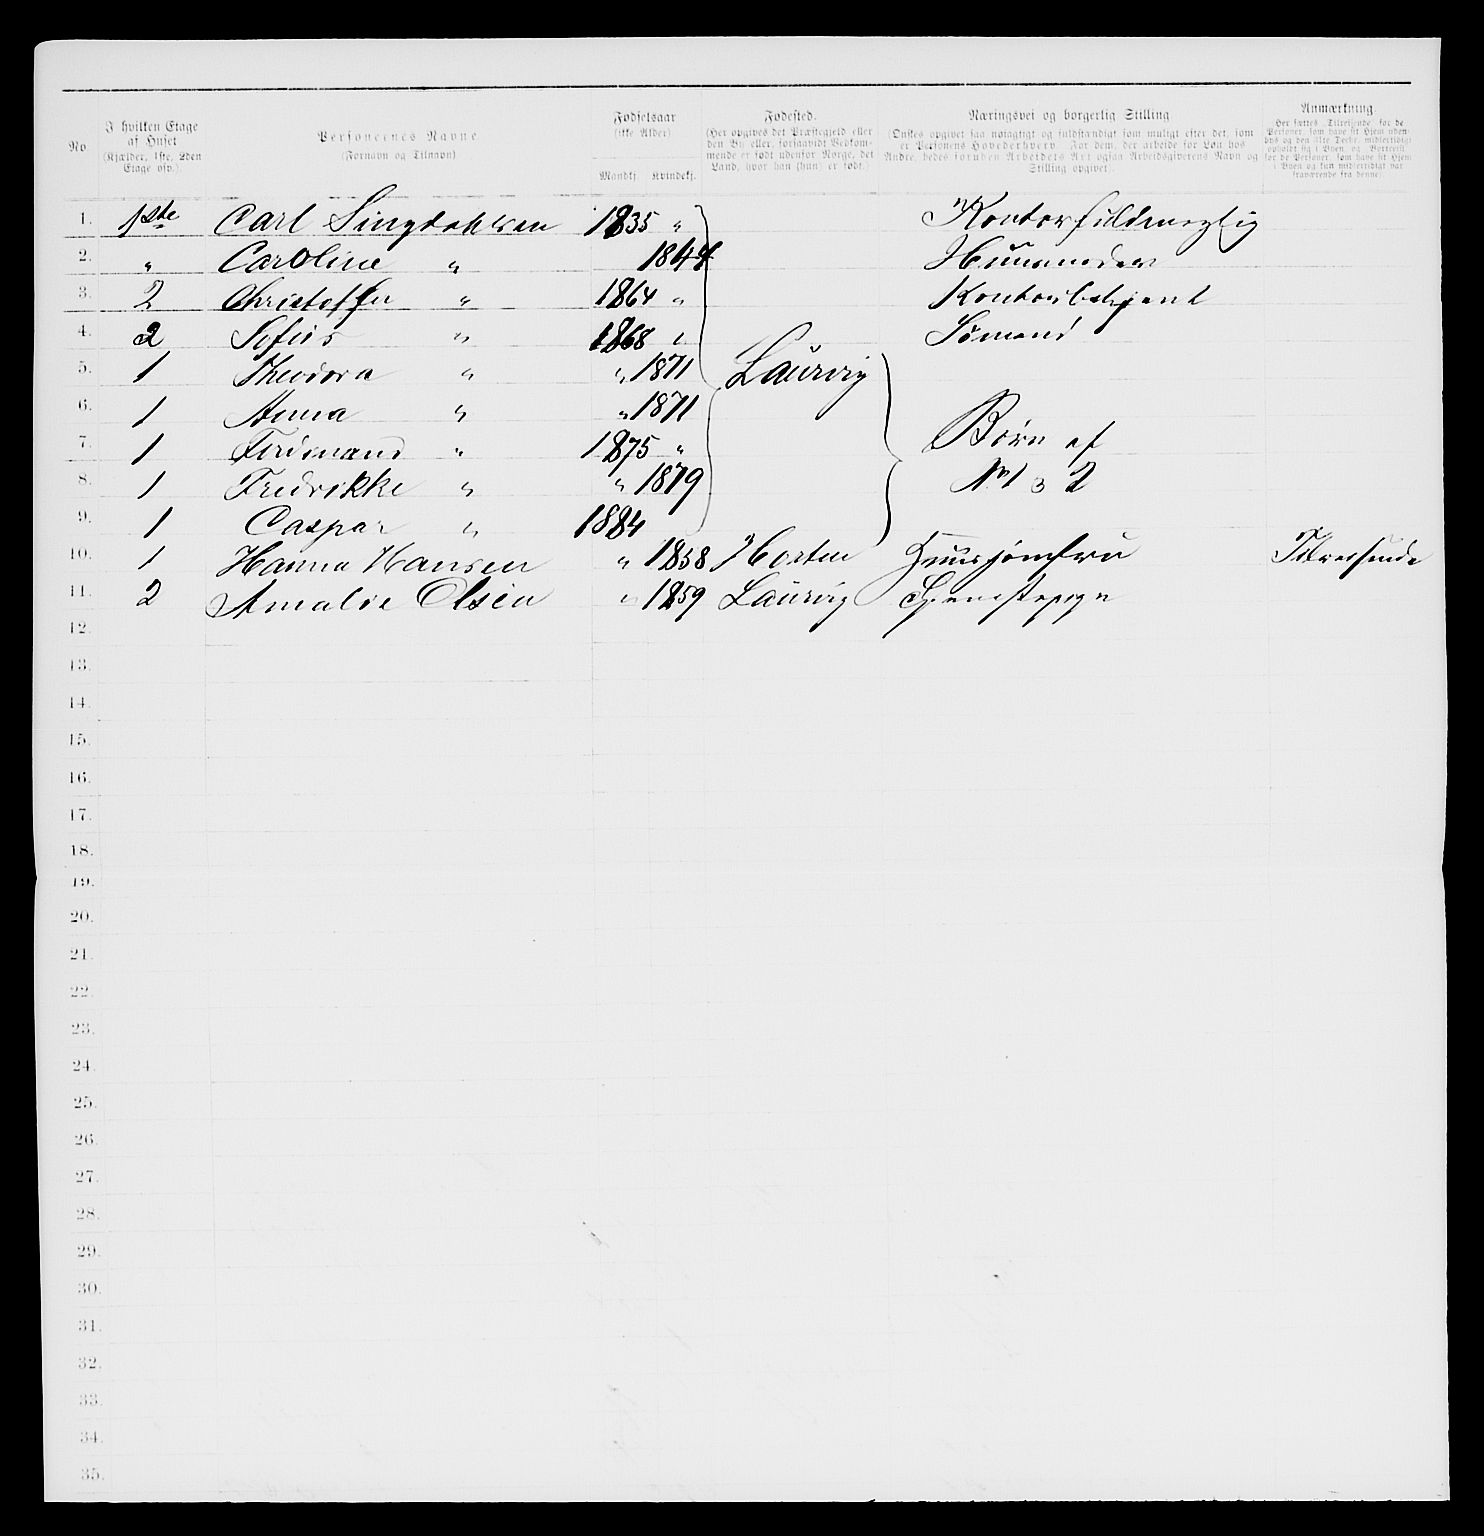 No
I hvilken Etage af Huset (Kjælder, 1ste, 2den Etage osv.).
Personernes Navne (Fornavn og Tilnavn)
Fødselsaar (ikke Alder)
Mandkj. Kvindekj.
Fødested. (Her opgives det Præstegjeld eller den By eller, forsaavidt Vedkommende er født udenfor Norge, det Land, hvor han (hun) er født.)
Næringsvei og borgerlig Stilling (Ønskes opgivet saa nøiagtigt og fuldstændigt som muligt efter det, som er Personens Hovederhverv. For dem, der arbeide for Løn hos Andre, bedes foruden Arbeidets Art ogsaa Arbeidsgiverens Navn og Stilling opgivet).
Anmærkning. Her sættes „Tilreisende" for de Personer, som have sit Hjem udenbys og den 31te Decbr. midlertidigt opholdt sig i Byen, og „Bortreist" for de Personer, som have sit Hjem i Byen og kun midlertidigt var fraværende fra denne).
1. 1ste Carl Singdahlsen 1835 " Kontorfuldmægtig
2. " Caroline " 1844 Huusmoder
3. 2 Christoffer " 1864 " Kontorbetjent
4. 2 Sofus " 1868 " Sømand
5. 1 Theodora " " 1871 Laurvig
6. 1 Anna " " 1871
7. 1 Ferdinand " 1875 " Børn af
8. 1 Fredrikke " " 1879 No 1 & 2
9. 1 Caspar " 1884
10. 1 Hanna Hansen " 1858 Horten Huusjomfru Tilreisende
11. 2 Amalie Olsen " 1859 Laurvig Tjenestepige
12.
13.
14.
15.
16.
17.
18.
19.
20.
21.
22.
23.
24.
25.
26.
27.
28.
29.
30.
31.
32.
33.
34.
35.